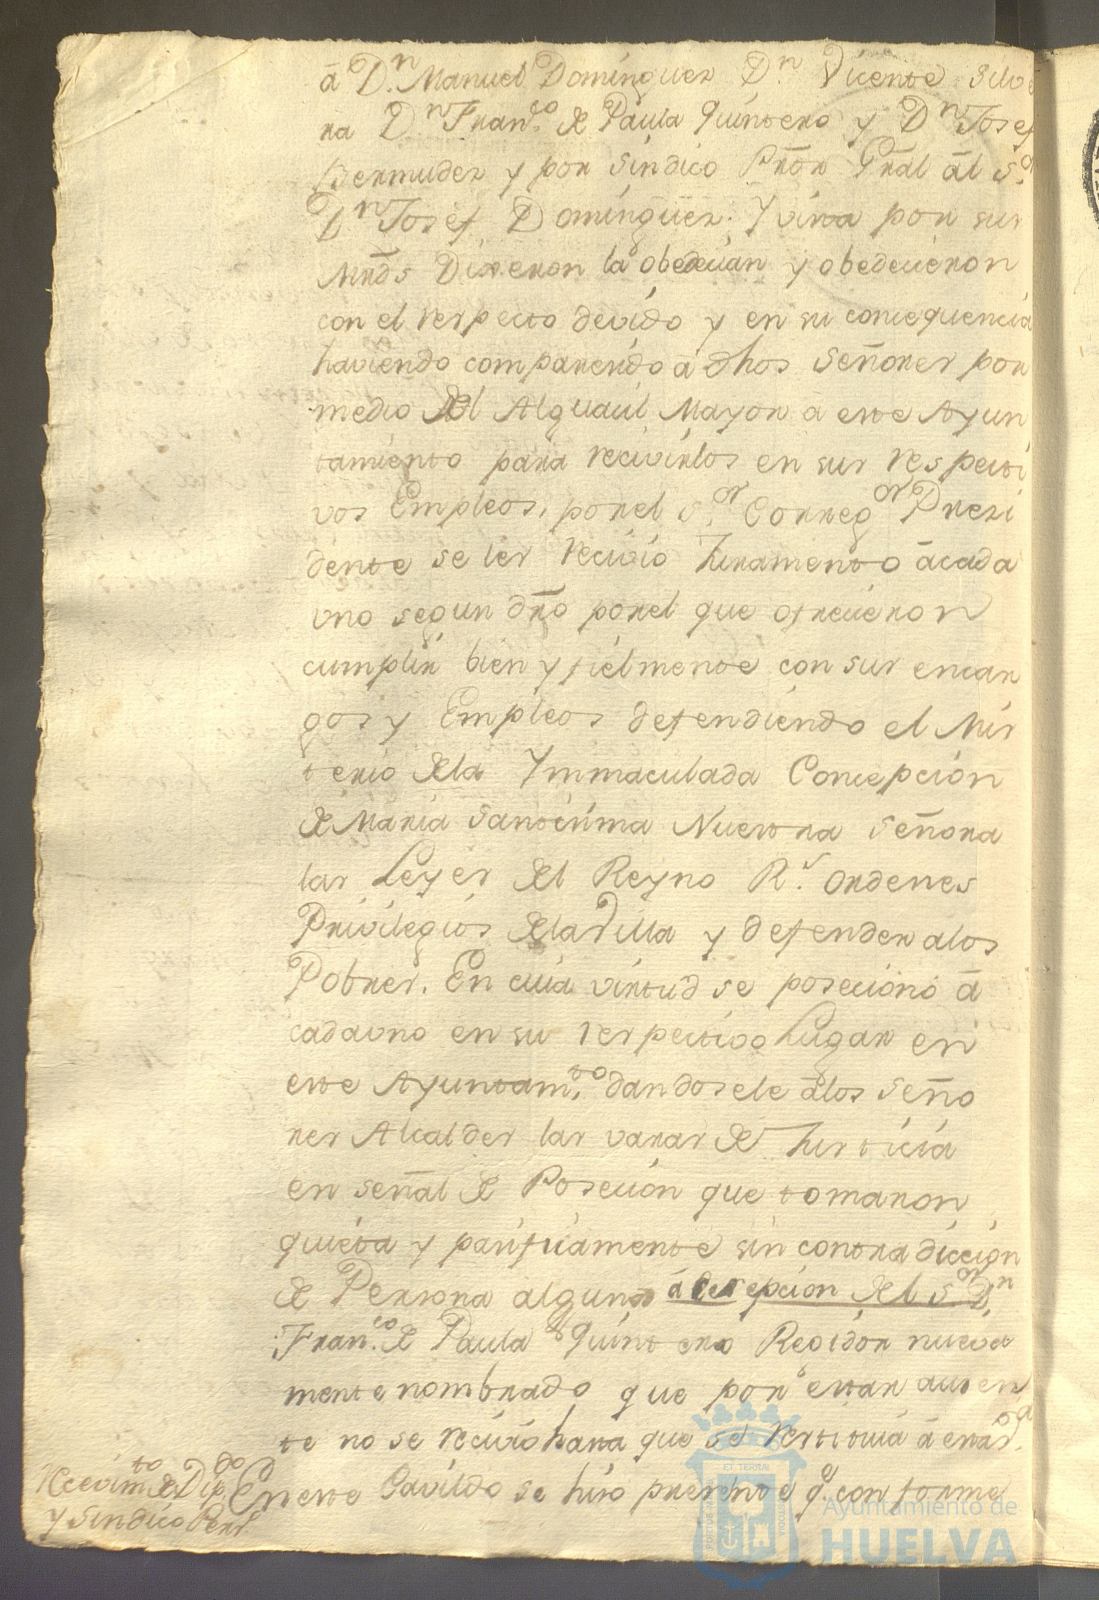 â Dn. Manuel Dominguez Dn. Vicente Silve
ra Dn Franco. de Paula Quintero y Dn Josef
Bermudez y por Sindico Prõr Grãl ãl Sor.
Dn Josef Dominguez. Y vista por sus
Mrds Dixeron la obedecian y obedecieron
con el respecto devido y en su consequencia
haviendo comparecido a dhos Señores por
medio del Alguacil Mayor a este Ayun
tamiento para recivirlos en sus respecti
vos Empleos, por el Sor. Corregor Prezi
dente se les recivio Juramento âcada
uno segun dr̃o porel que ofrecieron
cumplir bien y fielmente con sus encar
gos y Empleos defendiendo el Mis
terio dela Ymmaculada Concepcion
de Maria Santisima Nuestra Señora
las Leyes del Reyno Rs. ordenes
Privilegios delaVilla y defender alos
Pobres. En cuia virtud se posecionó â
cadauno en su respectivo Lugar en
este Ayuntamto. dandosele âlos Seño
res Alcaldes las varas de Justicia
en señal de Posecion que tomaron
quieta y pacificamente sin contradiccion
de Persona alguna â esepcion del Sor Dn.
Franco. de Paula Quintero Regidor nueva
mente nombrado que por estar ausen
te no se recivió hasta que se restituia â
Recevimto de Dipdo
y Sindico Pers
En este Cavildo se hizo presente q. conforme
ET TERRAE
Ayuntamiento de
HUELVA